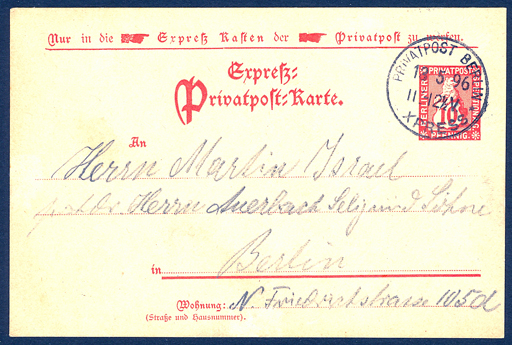 Nur in die Expreß Kasten der Privatpost zu werfen.
Expreß-
Privatpost-Karte.
PRIVATPOST BERLIN
13 5 96
11-12½V.
XPRESS
BERLINER PRIVATPOST
10
PFENNIG.
An
Herrn Martin Israel
Herrn Auerbach Selig und Söhne
in Berlin
Wohnung: N. Friedrichstrasse 105d
(Straße und Hausnummer).